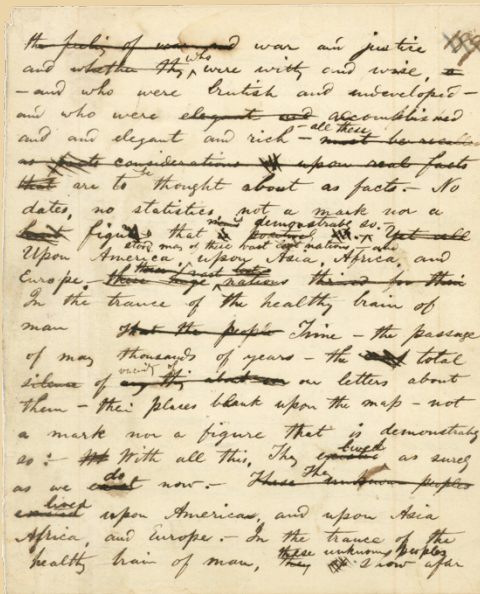 the feeling of war and war and justice
and whether they who were witty and wise,
– and who were brutish and undeveloped –
and who were elegant and accomplished
and and elegant and rich – all these must be
as facts considerations upon real facts
that are to be thought about as facts. – No
dates, no statistics, not a mark nor a
figure that is demonstrable so. Yet all
Upon America, stood many of these vast nations, – and upon Asia, Africa, and
Europe. these huge vast nations thrived for their
In the trance of the healthy brain of
man that the people Time – the passage
of many thousands of years – the total
silence vacuity of any thing about our letters about
them – their places blank upon the map – not
a mark nor a figure that is demonstrably
so: – With all this, They existed lived as surely
as we exist do now. – These The unknown peoples
existed lived upon America, and upon Asia
Africa, and Europe. – In the trance of the
healthy brain of man, they these unknown peoples show afar